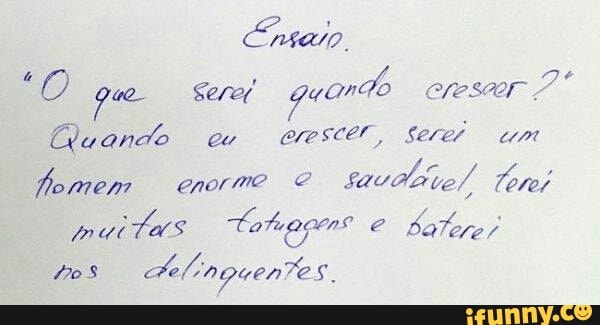 Ensaio.
"O que serei quando crescer?"
Quando eu crescer, serei um
homem enorme e saudável, terei
muitas tatuagens e baterei
nos delinquentes.
ifunny.co